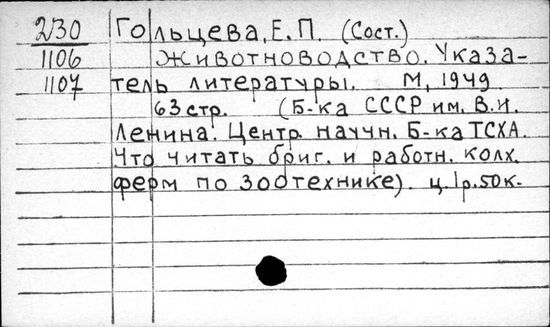 230 Гольцева, Е. П. (Сост.)
1106 Животноводство. Указа-
1107 тель литературы. М, 1949
63 стр. (Б-ка СССР им. В.И.
Ленина. Центр. научн. Б-ка ТСХА.
Что читать бриг. и работн. колх.
ферм по зоотехнике). ц. 1р.50к.